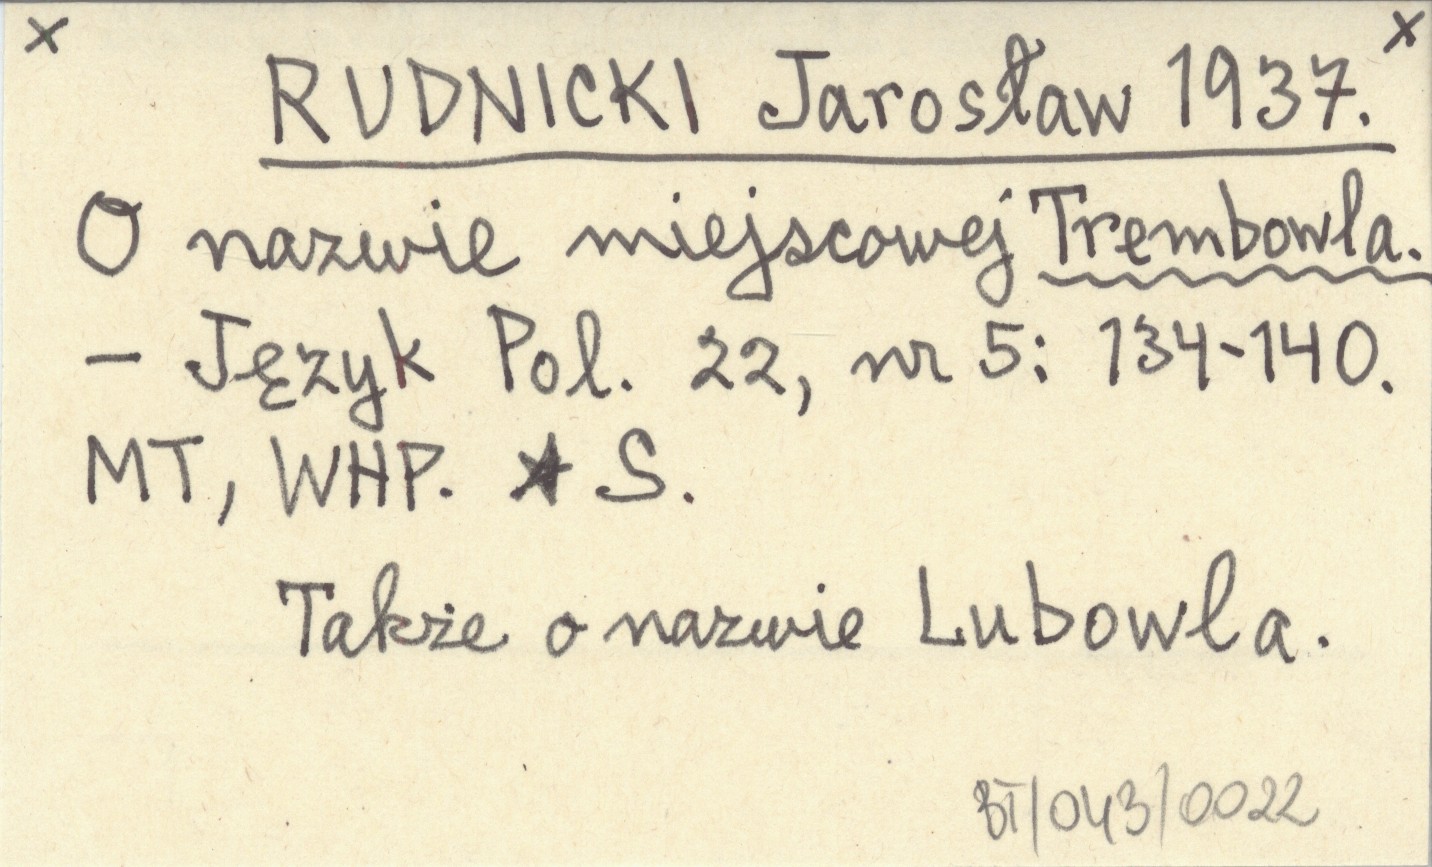 x x
RUDNICKI Jarosław 1937.
O nazwie miejscowej Trembowla.
- Język Pol. 22, nr 5: 134-140.
MT, WHP. ★ S.
Także o nazwie Lubowla.
BT/043/0022